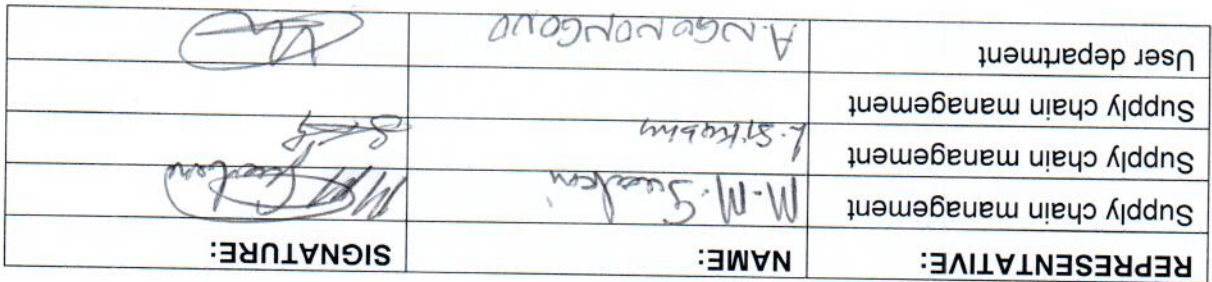 REPRESENTATIVE: NAME: SIGNATURE:
Supply chain management M.M.
Supply chain management L.
Supply chain management
User department A. NGONONGONO